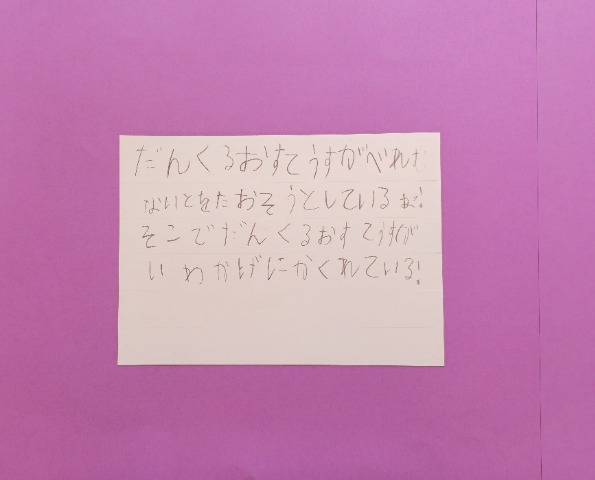 だんくるおすてうすがべれむ
ないとをたおそうとしているぞ!
そこでだんくるおすてうすが
いわかげにかくれている!